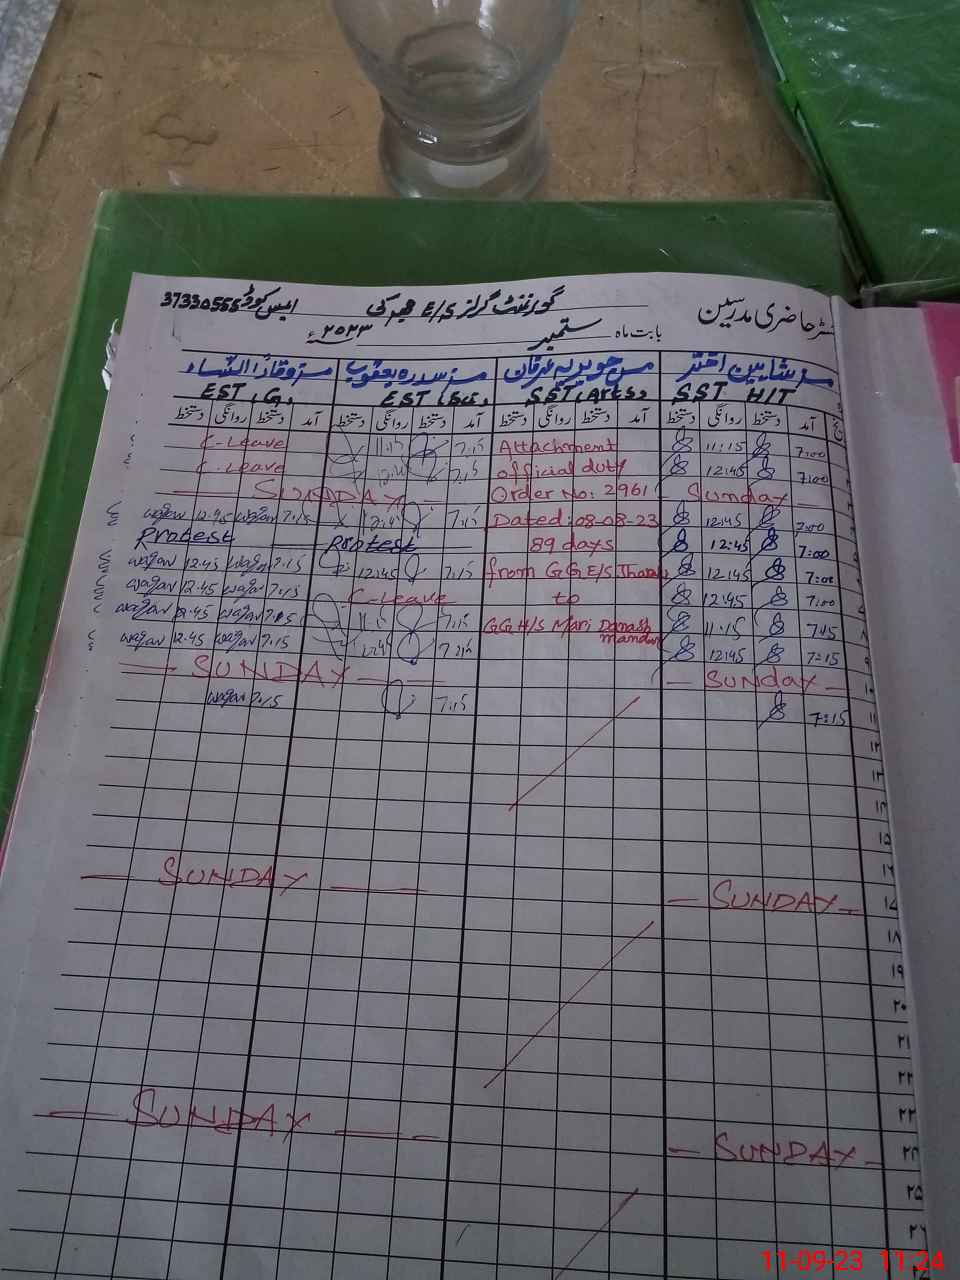 گورنمنٹ گرلز E/S ایمس کوڈ 37330555
رجسٹر حاضری مدرسین بابت ماہ ستمبر ۲۰۲۳ء
مسز شاہین اختر مس جویریہ عرفان مسز سدرہ یعقوب مسز وقار النساء
SST H/T SST (Arts) EST (Sci) EST (G)
آمد دستخط روانگی دستخط آمد دستخط روانگی دستخط آمد دستخط روانگی دستخط آمد دستخط روانگی دستخط
C-Leave 11:15 7:15 Attachment 11:15 7:00
C-Leave 7:15 official duty 12:45 7:00
SUNDAY Order No: 2961 Sunday
12:45 7:15 12:45 7:15 Dated: 08-08-23 12:45 7:00
Protest Protest 89 days 12:45 7:00
12:45 7:15 12:45 7:15 from GGE/S 12:45 7:00
12:45 7:15 C-Leave to 12:45 7:00
12:45 7:15 11:15 7:15 GGH/S Mari Danash 11:15 7:15
mandan
12:45 7:15 12:45 7:15 12:45 7:15
SUNDAY Sunday ۱۰
7:15 7:15 7:15 ۱۱
۱۲
۱۳
۱۴
۱۵
۱۶
SUNDAY SUNDAY ۱۷
۱۸
۱۹
۲۰
۲۱
۲۲
۲۳
SUNDAY SUNDAY ۲۴
۲۵
۲۶
11-09-23 11:24